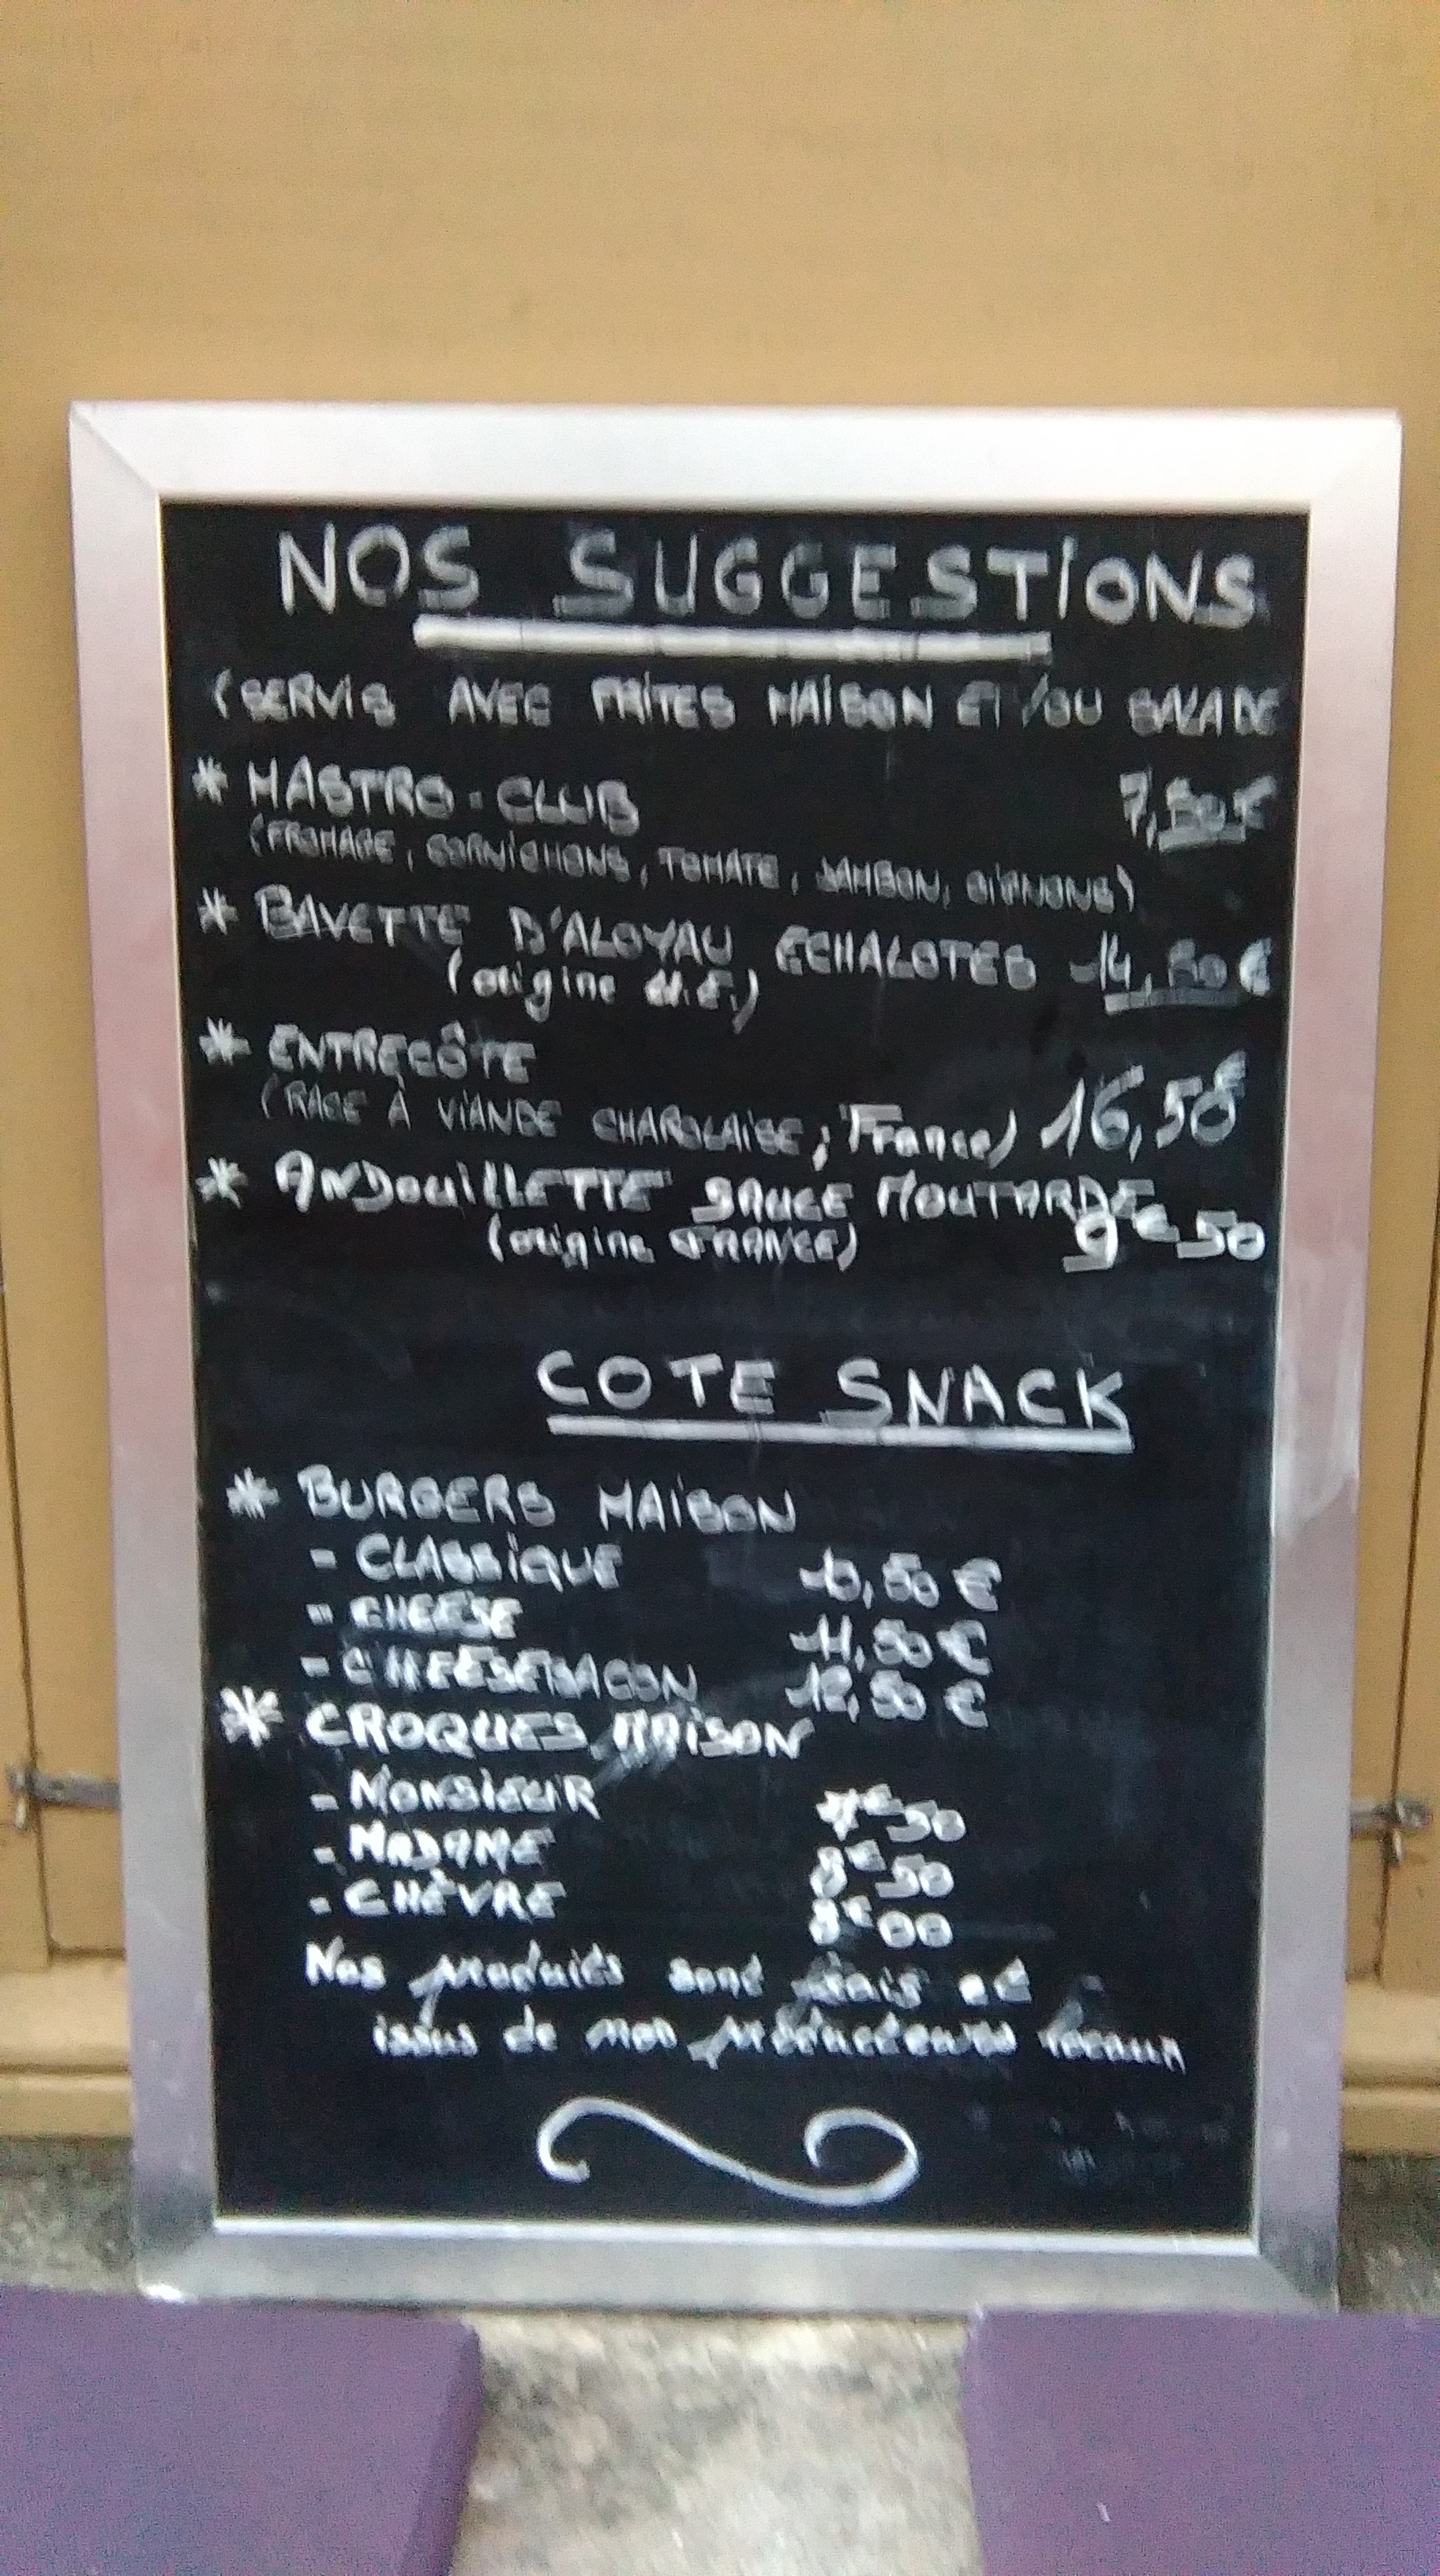 NOS SUGGESTIONS
(SERVIS AVEC FRITES MAISON ET/OU SALADE
* MASTRO-CLUB 7,50€
(FROMAGE, CORNICHONS, TOMATE, JAMBON, OIGNONS)
* BAVETTE D'ALOYAU ECHALOTES 14,50€
(origine U.E.)
* ENTRECÔTE
(RACE À VIANDE CHAROLAISE, France) 16,50€
* ANDOUILLETTE SAUCE MOUTARDE
(origine FRANCE) 9€50
COTE SNACK
* BURGERS MAISON
- CLASSIQUE ,50 €
- CHEESE 11,50 €
- CHEESEBACON 12,50 €
* CROQUES MAISON
- MONSIEUR 7€50
- MADAME 8€50
- CHÈVRE 8€00
Nos produits sont frais et
issus de nos producteurs locaux